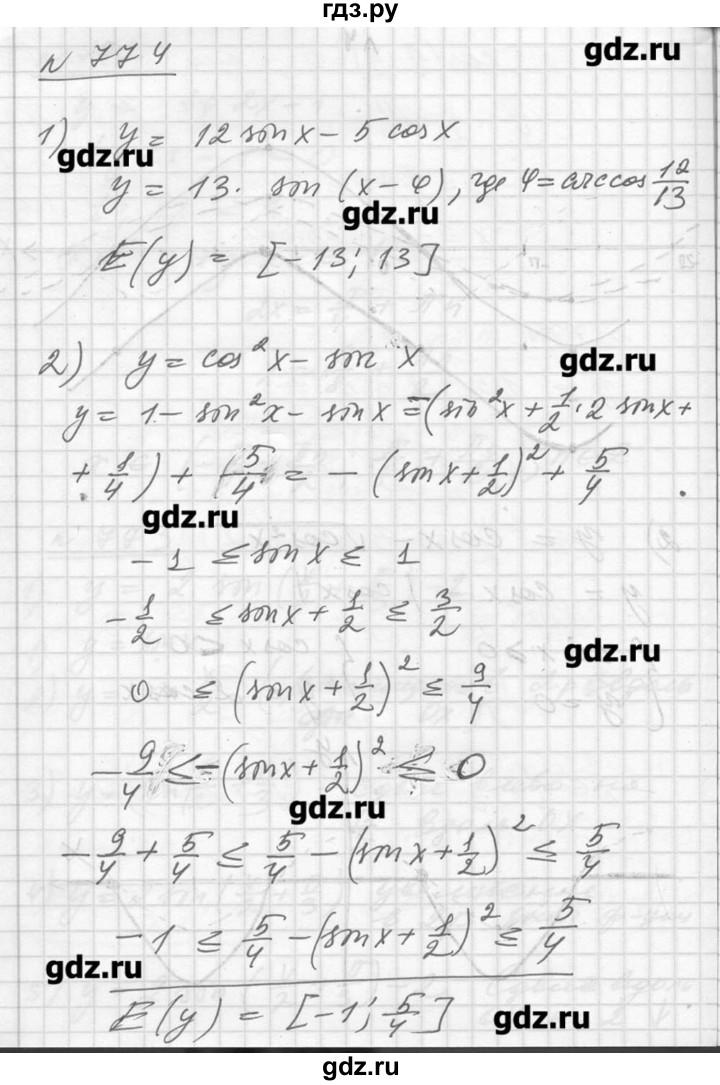 гдз.ру
№ 774
gdz.ru
1) y = 12 sin x - 5 cos x
gdz.ru
y = 13 · sin (x - φ), где φ = arccos 12/13
gdz.ru
E(y) = [-13; 13]
2) y = cos²x - sin x
gdz.ru
y = 1 - sin²x - sin x = -(sin²x + 1/2 · 2 sin x +
+ 1/4) + 5/4 = -(sin x + 1/2)² + 5/4
gdz.ru
-1 ≤ sin x ≤ 1
-1/2 ≤ sin x + 1/2 ≤ 3/2
gdz.ru
0 ≤ (sin x + 1/2)² ≤ 9/4
-9/4 ≤ -(sin x + 1/2)² ≤ 0
gdz.ru
-9/4 + 5/4 ≤ 5/4 - (sin x + 1/2)² ≤ 5/4
-1 ≤ 5/4 - (sin x + 1/2)² ≤ 5/4
gdz.ru
E(y) = [-1; 5/4]
gdz.ru
gdz.ru